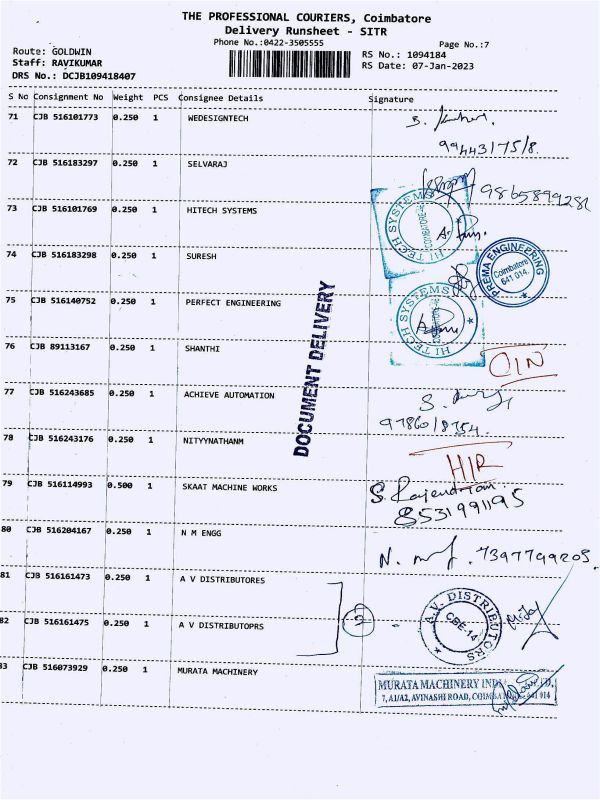 THE PROFESSIONAL COURIERS, Coimbatore
Delivery Runsheet - SITR
Phone No.:0422-3505555
Page No.:7
Route: GOLDWIN
RS No.: 1094184
Staff: RAVIKUMAR
RS Date: 07-Jan-2023
DRS No.: DCJB109418407
S No Consignment No Weight PCS Consignee Details Signature
71 CJB 516101773 0.250 1 WEDESIGNTECH
72 CJB 516183297 0.250 1 SELVARAJ
9865899281
73 CJB 516101769 0.250 1 HITECH SYSTEMS
HI TECH SYSTEMS
COIMBATORE
74 CJB 516183298 0.250 1 SURESH
PREMA ENGINEERING
Coimbatore
641 014.
75 CJB 516140752 0.250 1 PERFECT ENGINEERING
HI TECH SYSTEMS
DOCUMENT DELIVERY
76 CJB 89113167 0.250 1 SHANTHI
OIN
77 CJB 516243685 0.250 1 ACHIEVE AUTOMATION
78 CJB 516243176 0.250 1 NITYYNATHANM
HIR
79 CJB 516114993 0.500 1 SKAAT MACHINE WORKS
S. Rajendrian
8531991195
80 CJB 516204167 0.250 1 N M ENGG
7397799203
81 CJB 516161473 0.250 1 A V DISTRIBUTORES
82 CJB 516161475 0.250 1 A V DISTRIBUTOPRS
A.V. DISTRIBUTORS
CBE-14
83 CJB 516073929 0.250 1 MURATA MACHINERY
MURATA MACHINERY
7, A1/A2, AVINASHI ROAD, 641 014